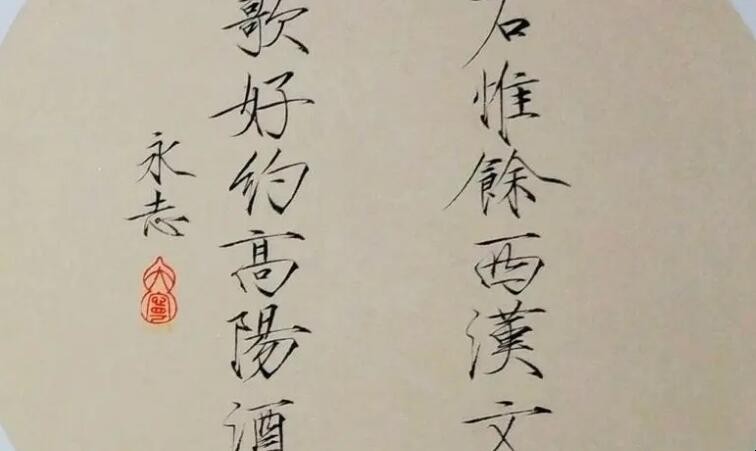 石惟餘西漢文
歌好約高陽酒
永志
大寧